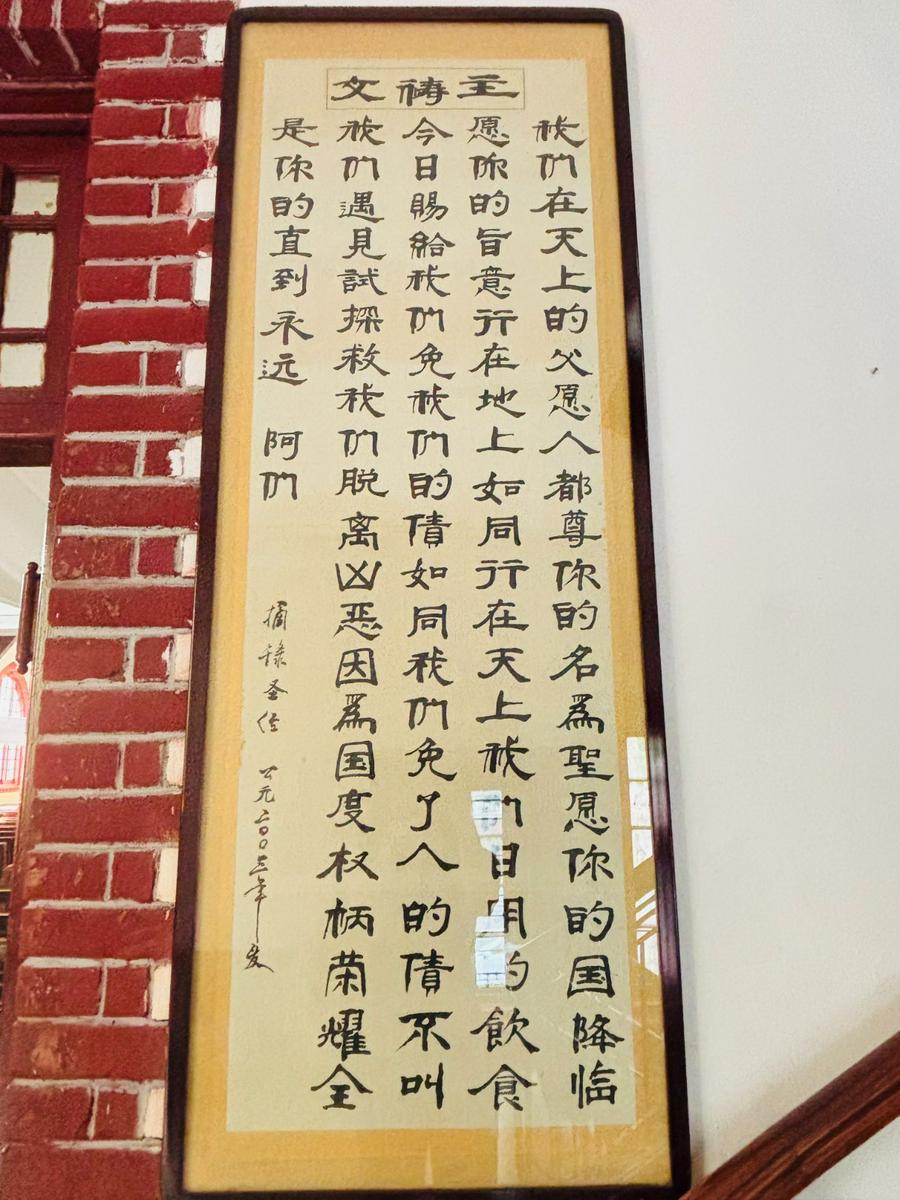 主祷文
我们在天上的父愿人都尊你的名爲聖愿你的国降临
愿你的旨意行在地上如同行在天上我们日用的飲食
今日賜給我们免我们的債如同我们免了人的債不叫
我们遇見試探救我们脱离凶恶因爲国度权柄荣耀全
是你的直到永远 阿们
摘録圣经 公元二〇〇三年夏